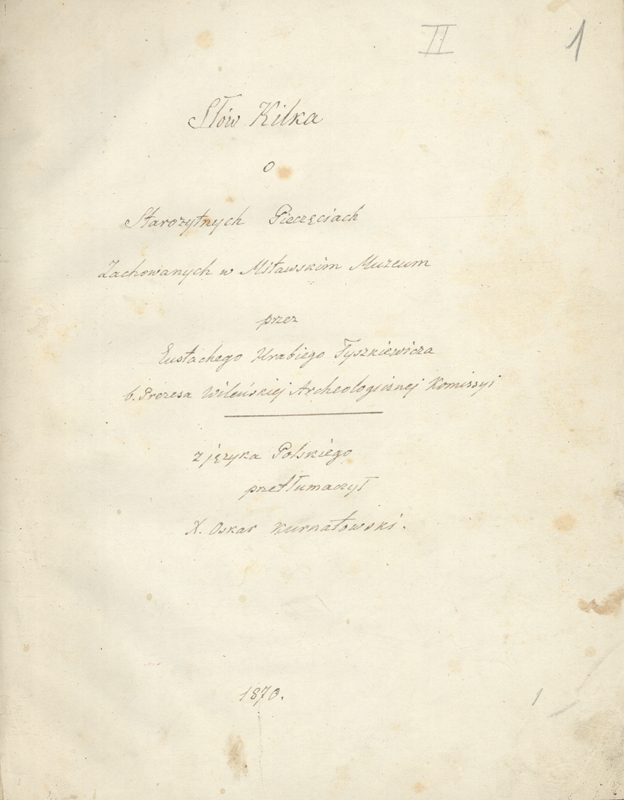 II 1
Słów Kilka
o
Starożytnych Pieczęciach
Zachowanych w Mitawskim Muzeum
przez
Eustachego Hrabiego Tyszkiewicza
b. Prezesa Wileńskiej Archeologicznej Komissyi
z języka Polskiego
przetłumaczył
X. Oskar Kurnatowski.
1870.
1